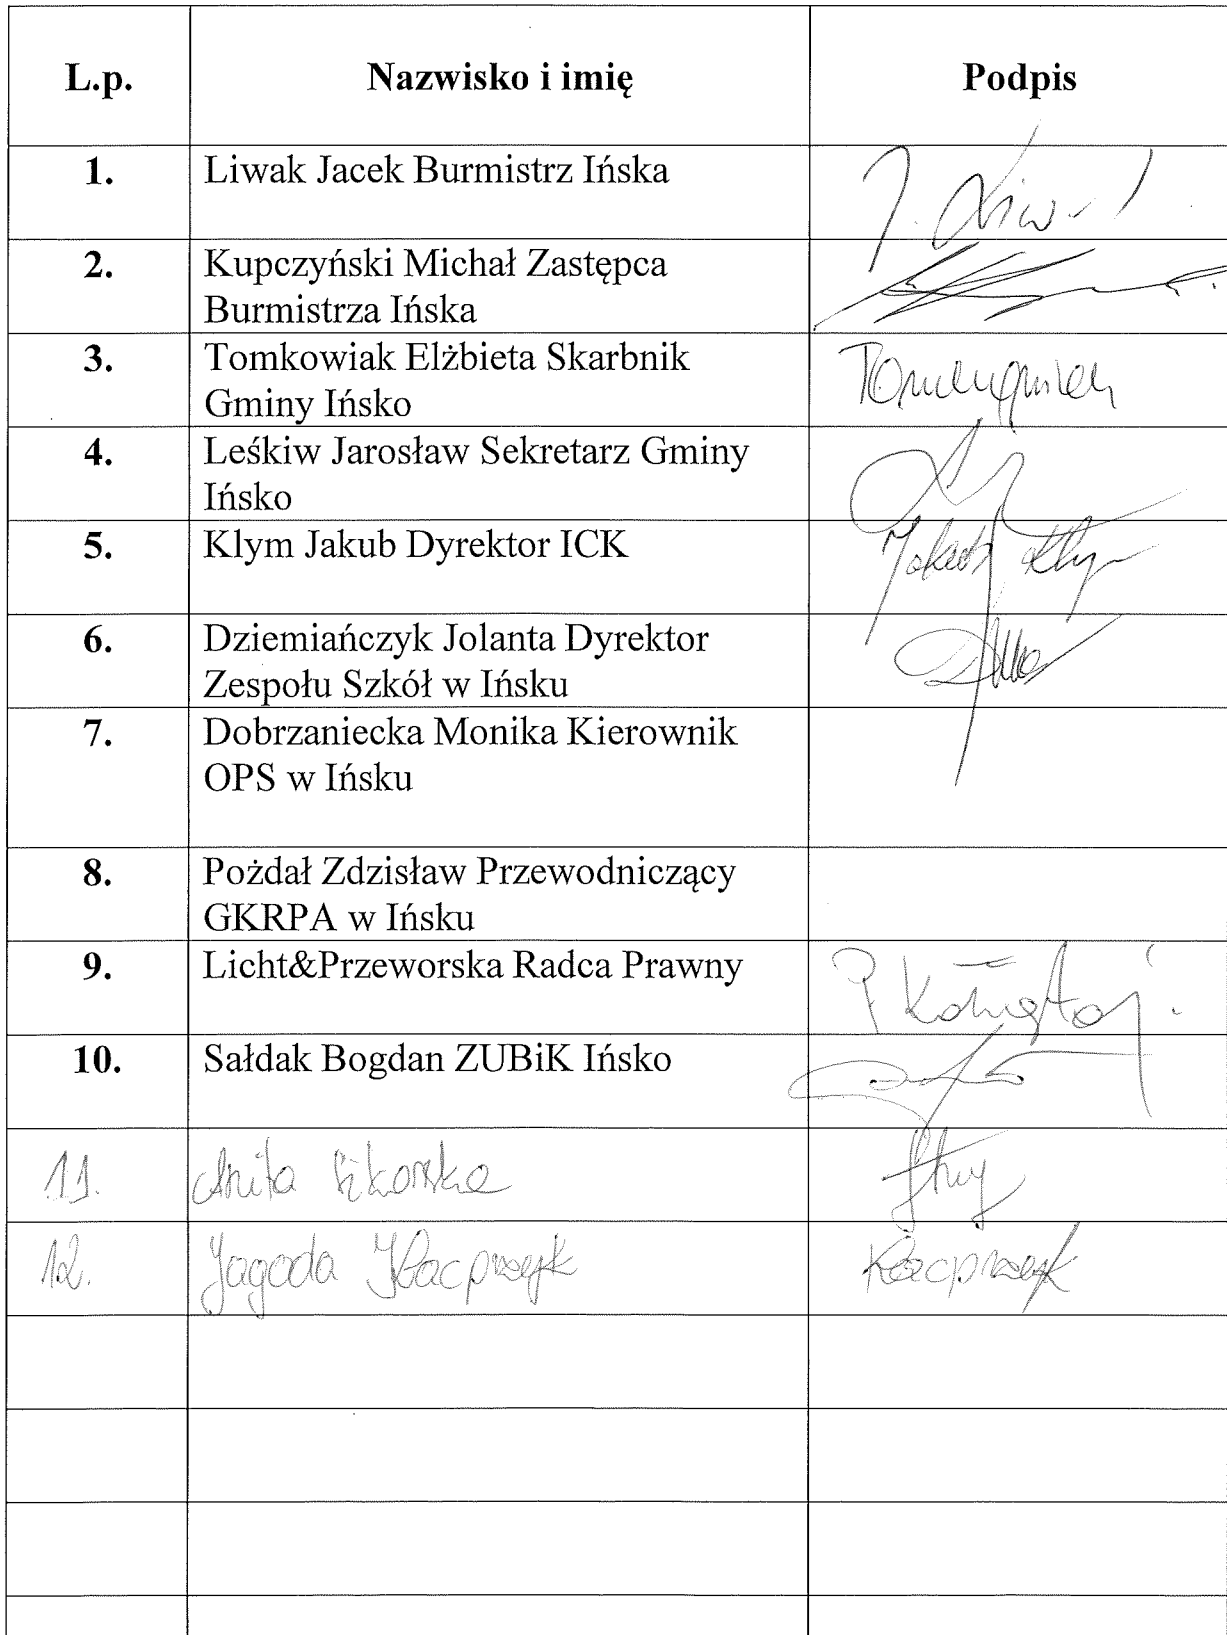 L.p. Nazwisko i imię Podpis
1. Liwak Jacek Burmistrz Ińska J. Liwak
2. Kupczyński Michał Zastępca
Burmistrza Ińska
3. Tomkowiak Elżbieta Skarbnik
Gminy Ińsko Tomkowiak
4. Leśkiw Jarosław Sekretarz Gminy
Ińsko
5. Klym Jakub Dyrektor ICK Jakub Klym
6. Dziemiańczyk Jolanta Dyrektor
Zespołu Szkół w Ińsku
7. Dobrzaniecka Monika Kierownik
OPS w Ińsku
8. Pożdał Zdzisław Przewodniczący
GKRPA w Ińsku
9. Licht&Przeworska Radca Prawny
10. Sałdak Bogdan ZUBiK Ińsko
11. Anita Sikorska
12. Jagoda Kacprzyk Kacprzyk